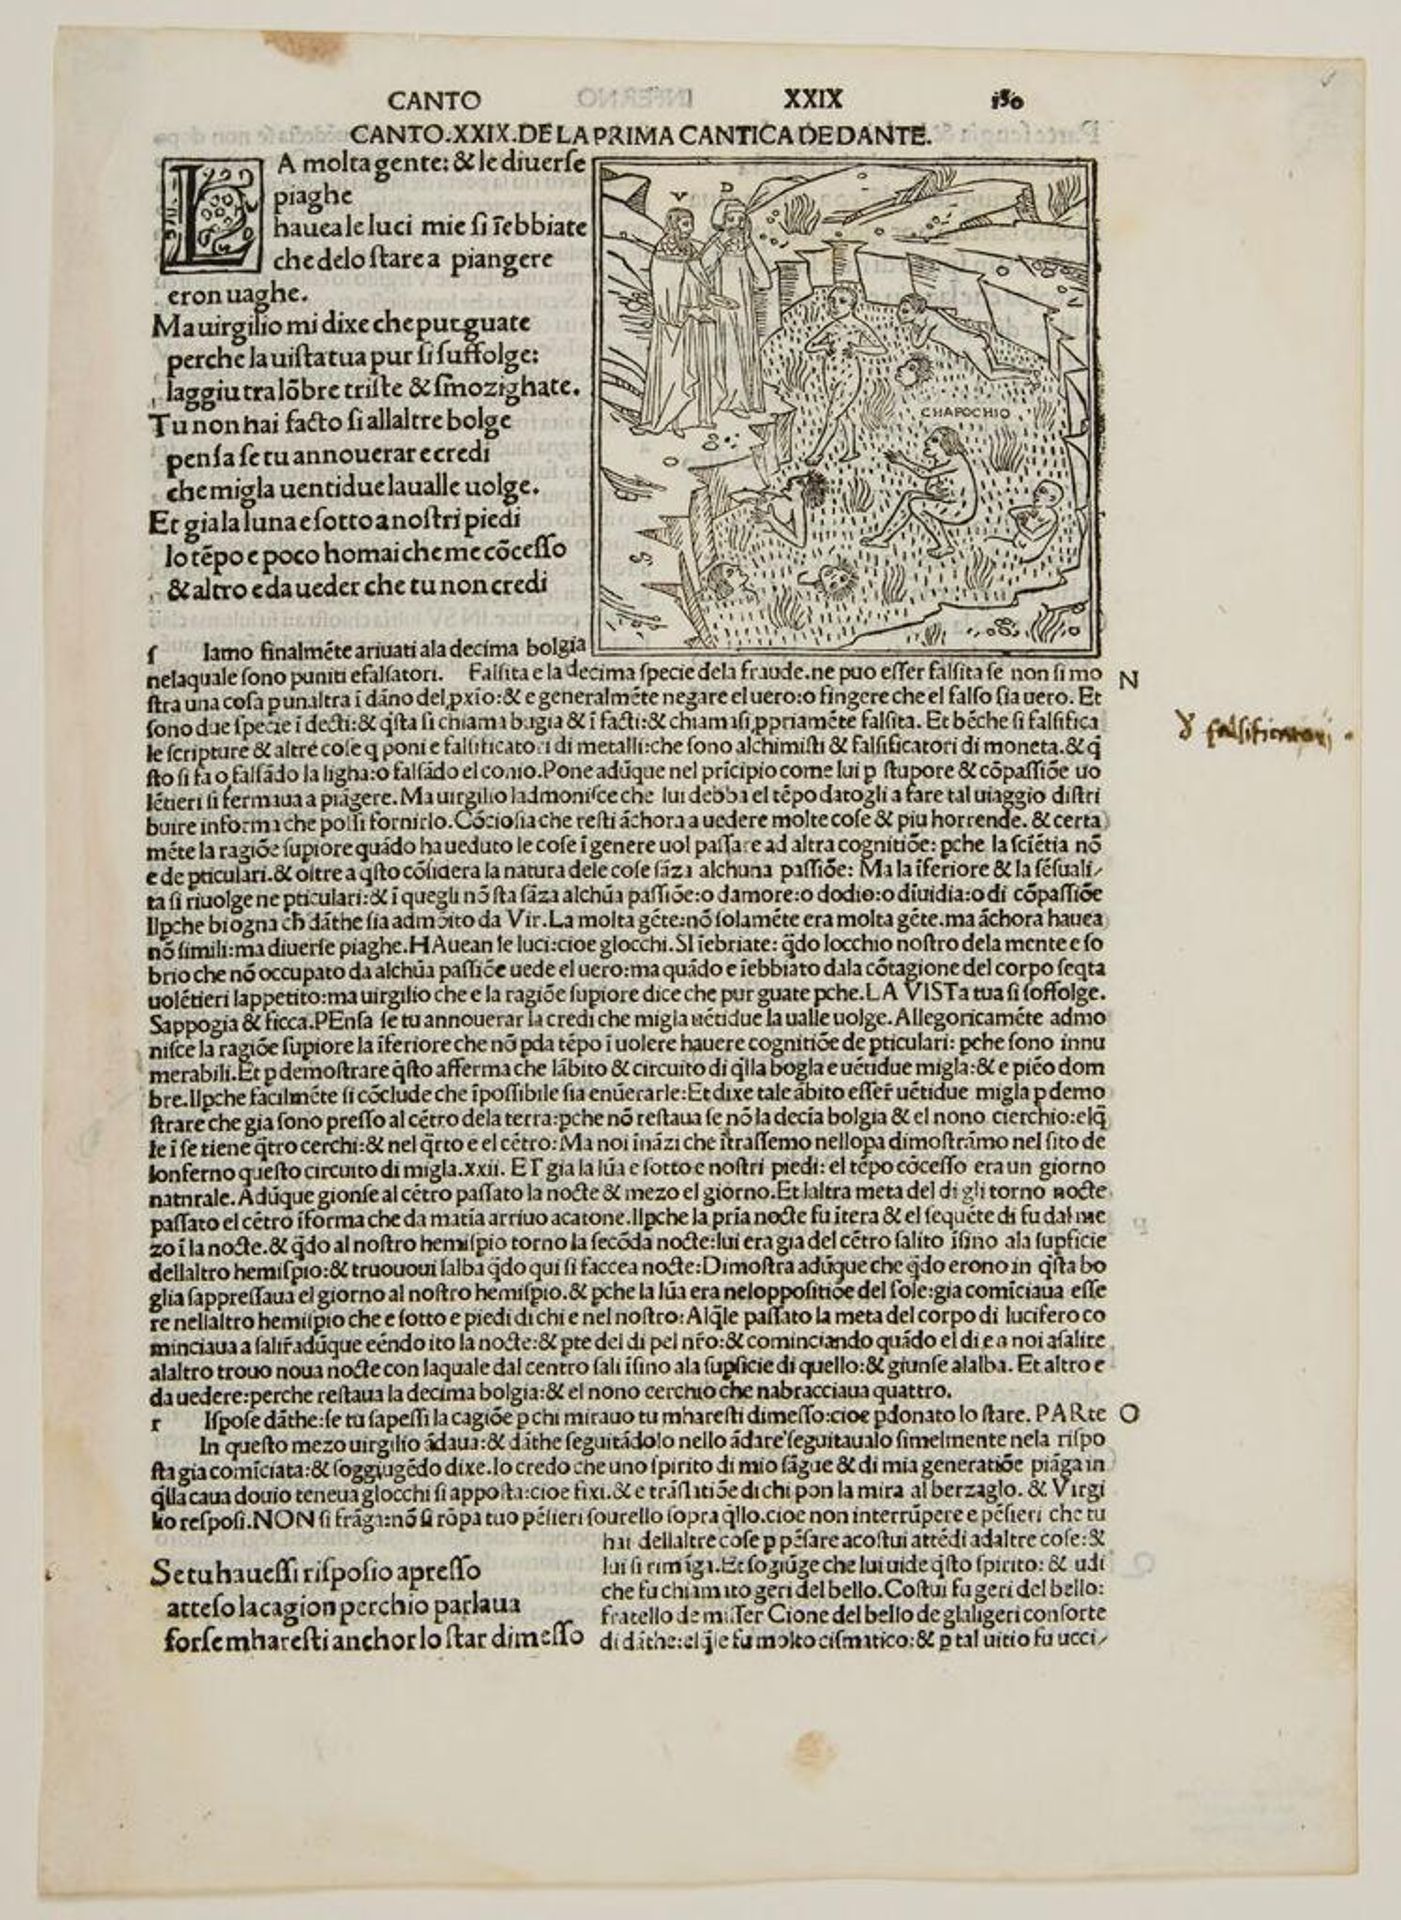 CANTO XXIX 150
CANTO.XXIX.DE LA PRIMA CANTICA DE DANTE.
LA molta gente: & le diuerse
piaghe
hauea le luci mie si ĩebbiate
che delo stare a piangere
eron uaghe.
Ma uirgilio mi dixe che pur guate
perche la uista tua pur si suffolge:
laggiu tra lõbre triste & smozighate.
Tu non hai facto si allaltre bolge
pensa se tu annouerare credi
che migla uentidue la ualle uolge.
Et gia la luna e sotto a nostri piedi
lo tẽpo e poco homai che me cõcesso
& altro e da ueder che tu non credi
V D
CHAPOCHIO
f Iamo finalmẽte ariuati ala decima bolgia
nelaquale sono puniti e falsatori. Falsita e la decima specie dela fraude. ne puo esser falsita se non si mo N
stra una cosa p unaltra ĩ dãno del pxĩo: & e generalmẽte negare el uero: o fingere che el falso sia uero. Et
sono due specie ĩ decti: & q̃sta si chiama bugia & ĩ facti: & chiamasi ppriamẽte falsita. Et bẽche si falsifica
le scripture & altre cose q poni e falsificatori di metalli: che sono alchimisti & falsificatori di moneta. & q̃
sto si fa o falsãdo la ligha: o falsãdo el conio. Pone adũque nel prĩcipio come lui p stupore & cõpassiõe uo
lẽtieri si fermaua a piãgere. Ma uirgilio ladmonisce che lui debba el tẽpo datogli a fare tal uiaggio distri
buire in forma che possi fornirlo. Cõciosia che resti ãchora a uedere molte cose & piu horrende. & certa
mẽte la ragiõe supiore quãdo ha ueduto le cose ĩ genere uol passare ad altra cognitiõe: pche la sciẽtia nõ
e de pticulari. & oltre a q̃sto cõsidera la natura dele cose sãza alchuna passiõe: Ma la ĩferiore & la sẽsuali/
ta si riuolge ne pticulari: & ĩ quegli nõ sta sãza alchũa passiõe: o damore: o dodio: o dĩuidia: o di cõpassiõe
Ilpche biogna ch dãthe sia admõito da Vir. La molta gẽte: nõ solamẽte era molta gẽte. ma ãchora hauea
nõ simili: ma diuerse piaghe. HAuean le luci: cioe glocchi. SI ĩebriate: q̃do locchio nostro dela mente e so
brio che nõ occupato da alchũa passiõe uede el uero: ma quãdo e ĩebbiato dala cõtagione del corpo seqta
uolẽtieri lappetito: ma uirgilio che e la ragiõe supiore dice che pur guate pche. LA VISTa tua si soffolge.
Sappogia & ficca. PEnsa se tu annouerar la credi che migla uẽtidue la ualle uolge. Allegoricamẽte admo
nisce la ragiõe supiore la ĩferiore che nõ pda tẽpo ĩ uolere hauere cognitiõe de pticulari: pche sono innu
merabili. Et p demostrare q̃sto afferma che lãbito & circuito di q̃lla bogla e uẽtidue migla: & e piẽo dom
bre. Ilpche facilmẽte si cõclude che ĩpossibile sia enũerarle: Et dixe tale ãbito esser̃ uẽtidue migla p demo
strare che gia sono presso al cẽtro dela terra: pche nõ restaua se nõ la decĩa bolgia & el nono cierchio: elq̃
le ĩ se tiene q̃tro cerchi: & nel q̃rto e el cẽtro: Ma noi ĩnãzi che ĩtrassemo nellopa dimostrãmo nel sito de
lonferno questo circuito di migla.xxii. ET gia la lũa e sotto e nostri piedi: el tẽpo cõcesso era un giorno
natnrale. Adũque gionse al cẽtro passato la nocte & mezo el giorno. Et laltra meta del di gli torno nocte
passato el cẽtro ĩforma che da matĩa arriuo a catone. Ilpche la prĩa nocte fu ĩtera & el sequẽte di fu dal me
zo ĩ la nocte. & q̃do al nostro hemispio torno la secõda nocte: lui era gia del cẽtro salito ĩsino ala supficie
dellaltro hemispio: & truououi salba q̃do qui si faccea nocte: Dimostra adũque che q̃do erono in q̃sta bo
glia sappressaua el giorno al nostro hemispio. & pche la lũa era nel oppositiõe del sole: gia comĩciaua esse
re nellaltro hemispio che e sotto e piedi di chi e nel nostro: Alq̃le passato la meta del corpo di lucifero co
minciaua a salir̃ adũque eẽndo ito la nocte: & pte del di pel nr̃o: & cominciando quãdo el di e a noi asalire
alaltro trouo noua nocte con laquale dal centro sali ĩsino ala supficie di quello: & giunse alalba. Et altro e
da uedere: perche restaua la decima bolgia: & el nono cerchio che nabracciaua quattro.
r Ispose dãthe: se tu sapessi la cagiõe p chi mirauo tu mharesti dimesso: cioe pdonato lo stare. PARte O
In questo mezo uirgilio ãdaua: & dãthe seguitãdolo nello ãdare seguitaualo simelmente nela rispo
sta gia comĩciata: & soggiugẽdo dixe. Io credo che uno spirito di mio sãgue & di mia generatiõe piãga in
q̃lla caua douio teneua glocchi si apposta: cioe fixi. & e trãslatiõe di chi pon la mira al berzaglo. & Virgi
lio resposi. NON si frãga: nõ si rõpa tuo pẽsieri sourello sopra q̃llo. cioe non interrũpere e pẽsieri che tu
hai dellaltre cose p pẽsare acostui attẽdi adaltre cose: &
lui si rimãga. Et sogiũge che lui uide q̃sto spirito: & udi
che fu chiamato geri del bello. Costui fu geri del bello:
fratello de misser Cione del bello de glaligeri consorte
di dãthe: elq̃le fu molto cismatico: & p tal uitio fu ucci/
Se tu hauessi risposio apresso
atteso la cagion perchio parlaua
forse mharesti anchor lo star dimesso
falsificatori